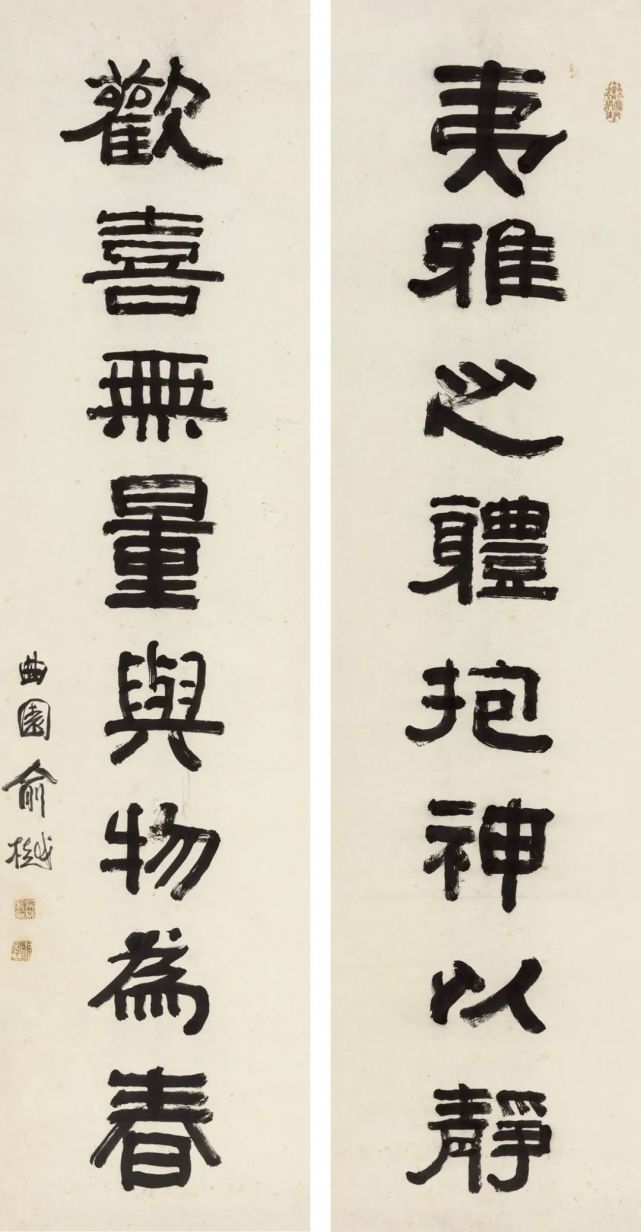 夷雅之體抱神以靜
歡喜無量與物為春
曲園俞樾